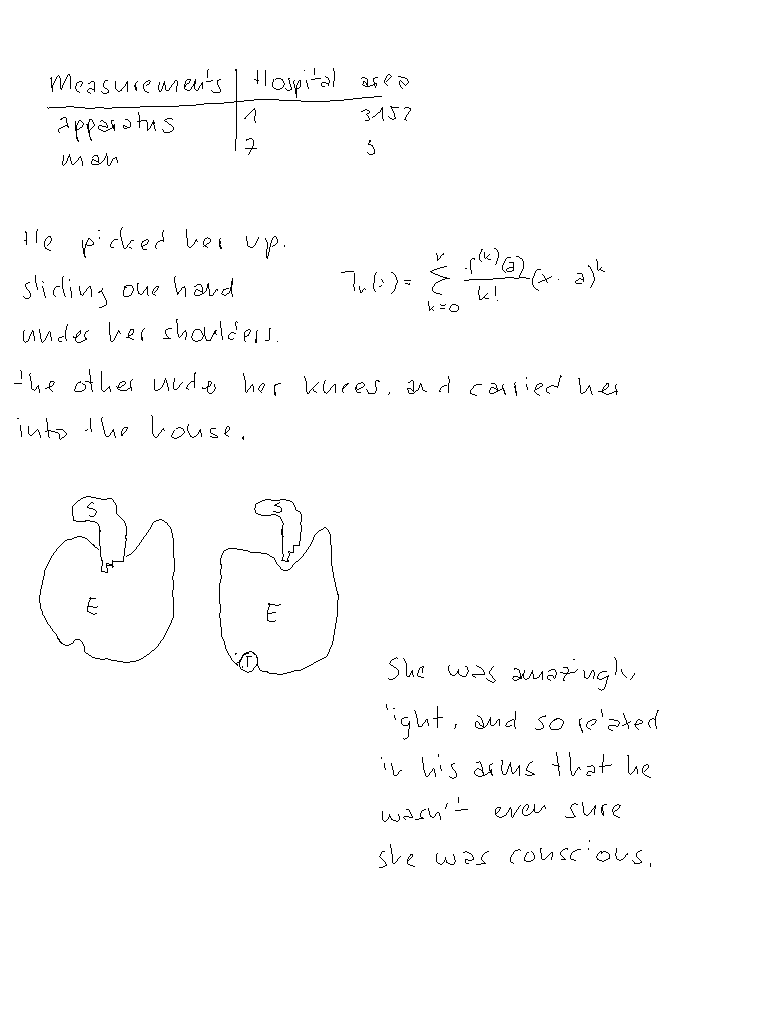 Measurements Hospital area
apparatus 1 3152
man 7 5
He picked her up.
sliding one hand
under her shoulders.
the other under her knees, and carried her
into the house.
T_n(x) = \sum_{k=0}^{n} \frac{f^{(k)}(a)}{k!} (x - a)^k
S S
E E
T
She was amazingly
light, and so relaxed
in his arms that he
wasn't even sure
she was conscious.